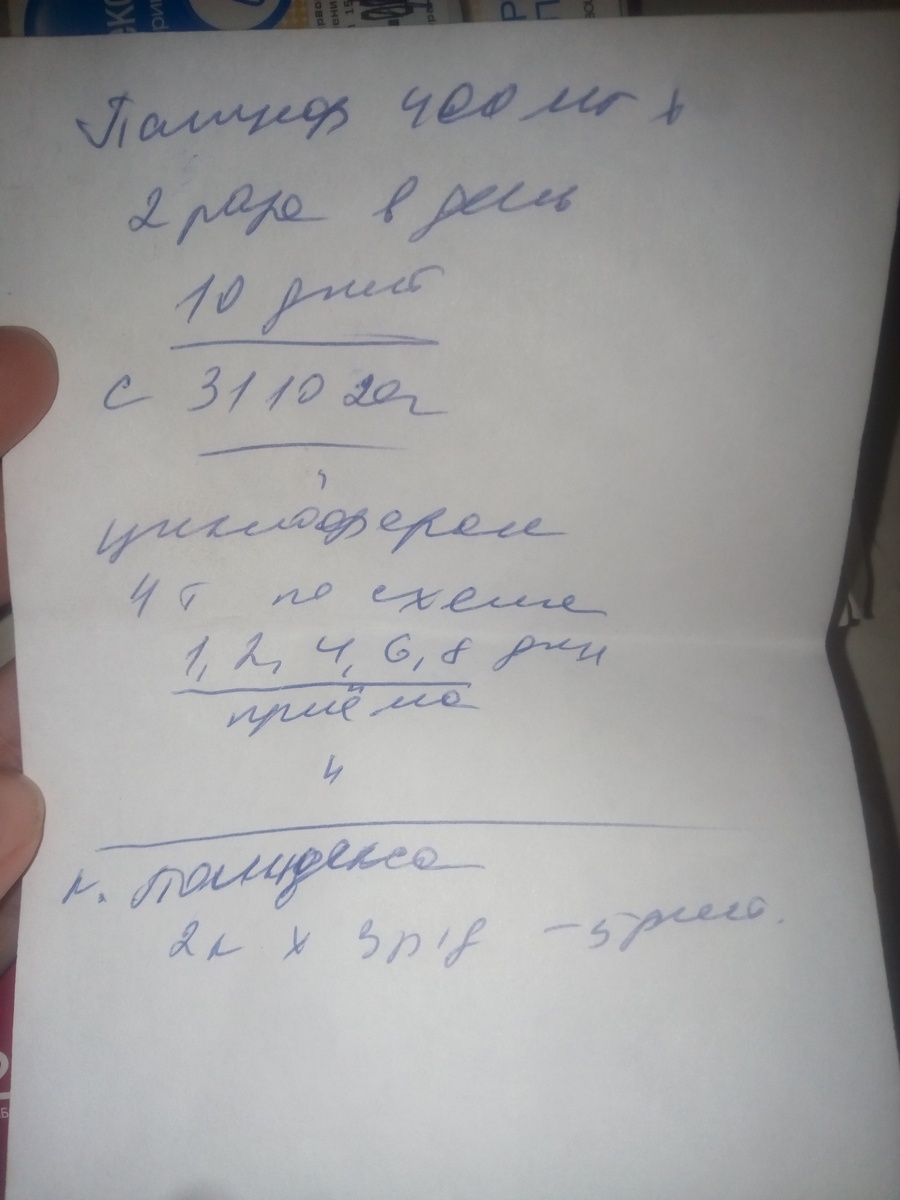 Палицеф 400 мг х
2 раза в день
10 дней
с 31 10 20г
циклоферон
4 т по схеме
1, 2, 4, 6, 8 дни
приёма
к. Полидекса
2к х 3р/д – 5 дней.